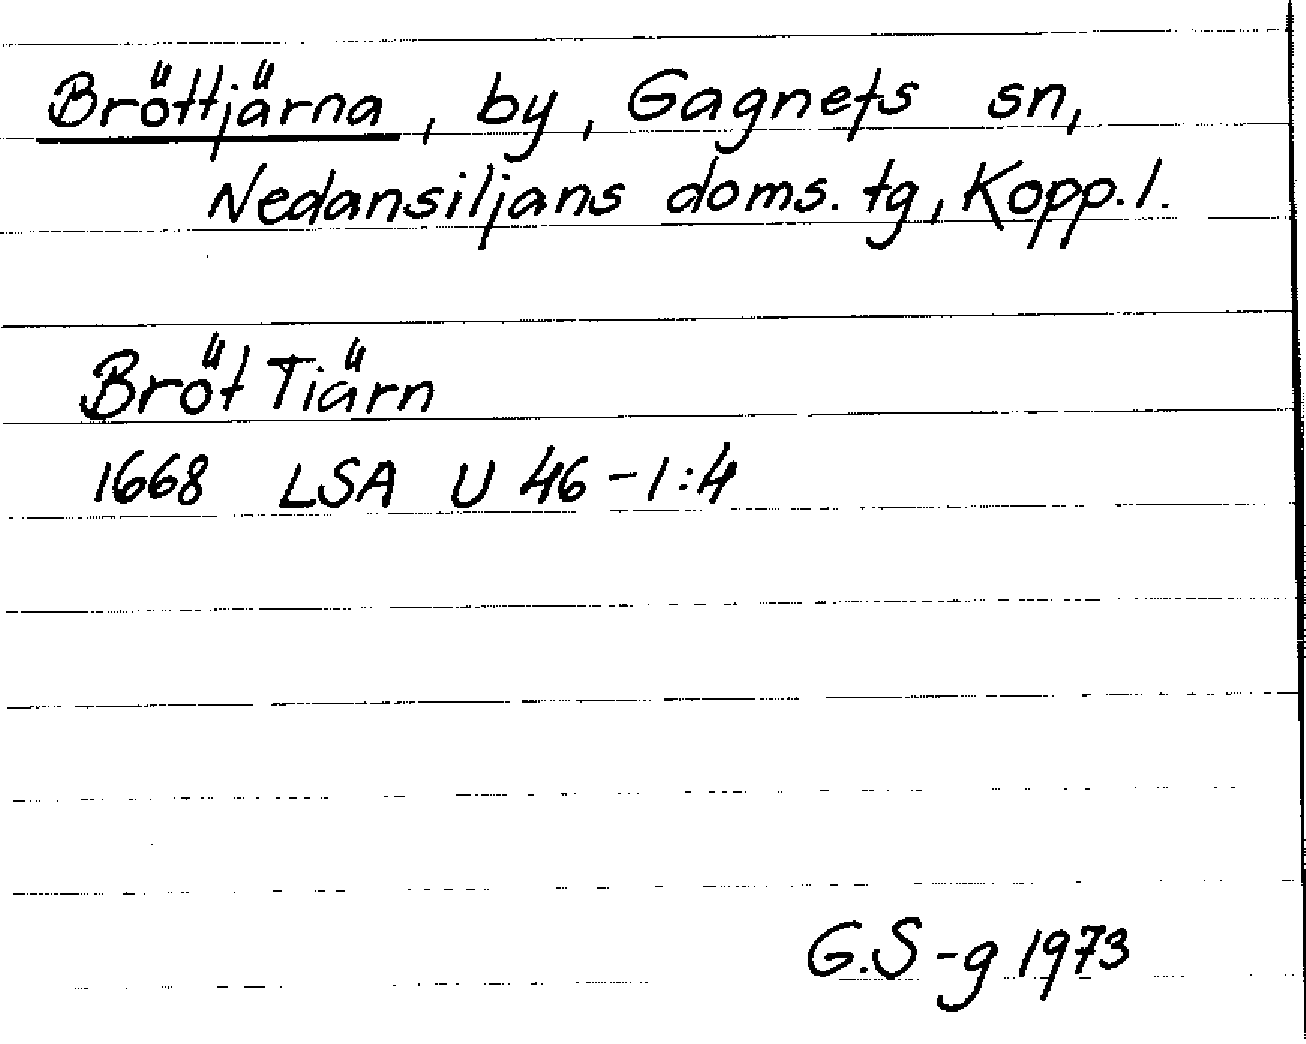 Bröttjärna, by, Gagnefs sn,
Nedansiljans doms. tg, Kopp. l.
Bröt Tiärn
1668 LSA U 46-1:4
G.S-g 1973